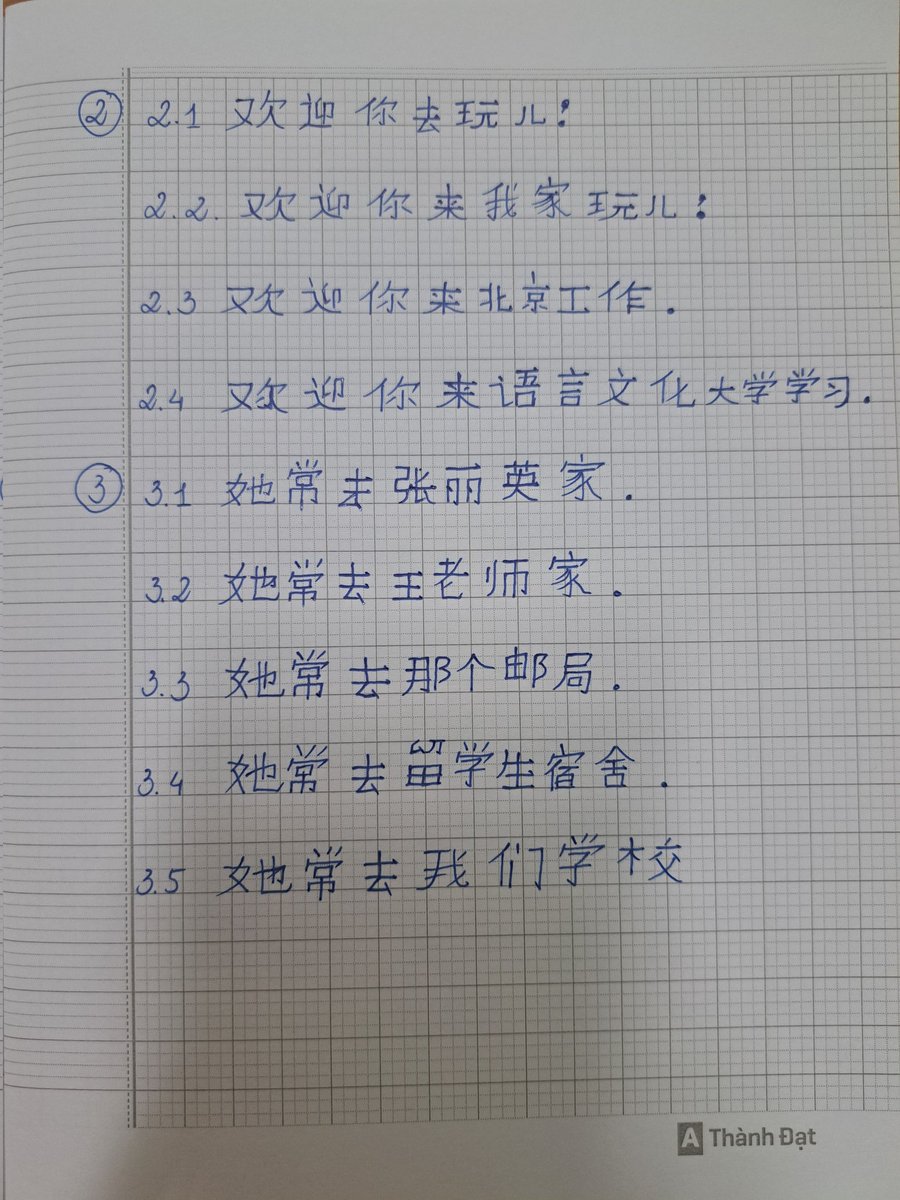 ② 2.1 欢迎你去玩儿!
2.2. 欢迎你来我家玩儿!
2.3 欢迎你来北京工作.
2.4 欢迎你来语言文化大学学习.
③ 3.1 她常去张丽英家.
3.2 她常去王老师家.
3.3 她常去那个邮局.
3.4 她常去留学生宿舍.
3.5 她常去我们学校
A Thành Đạt